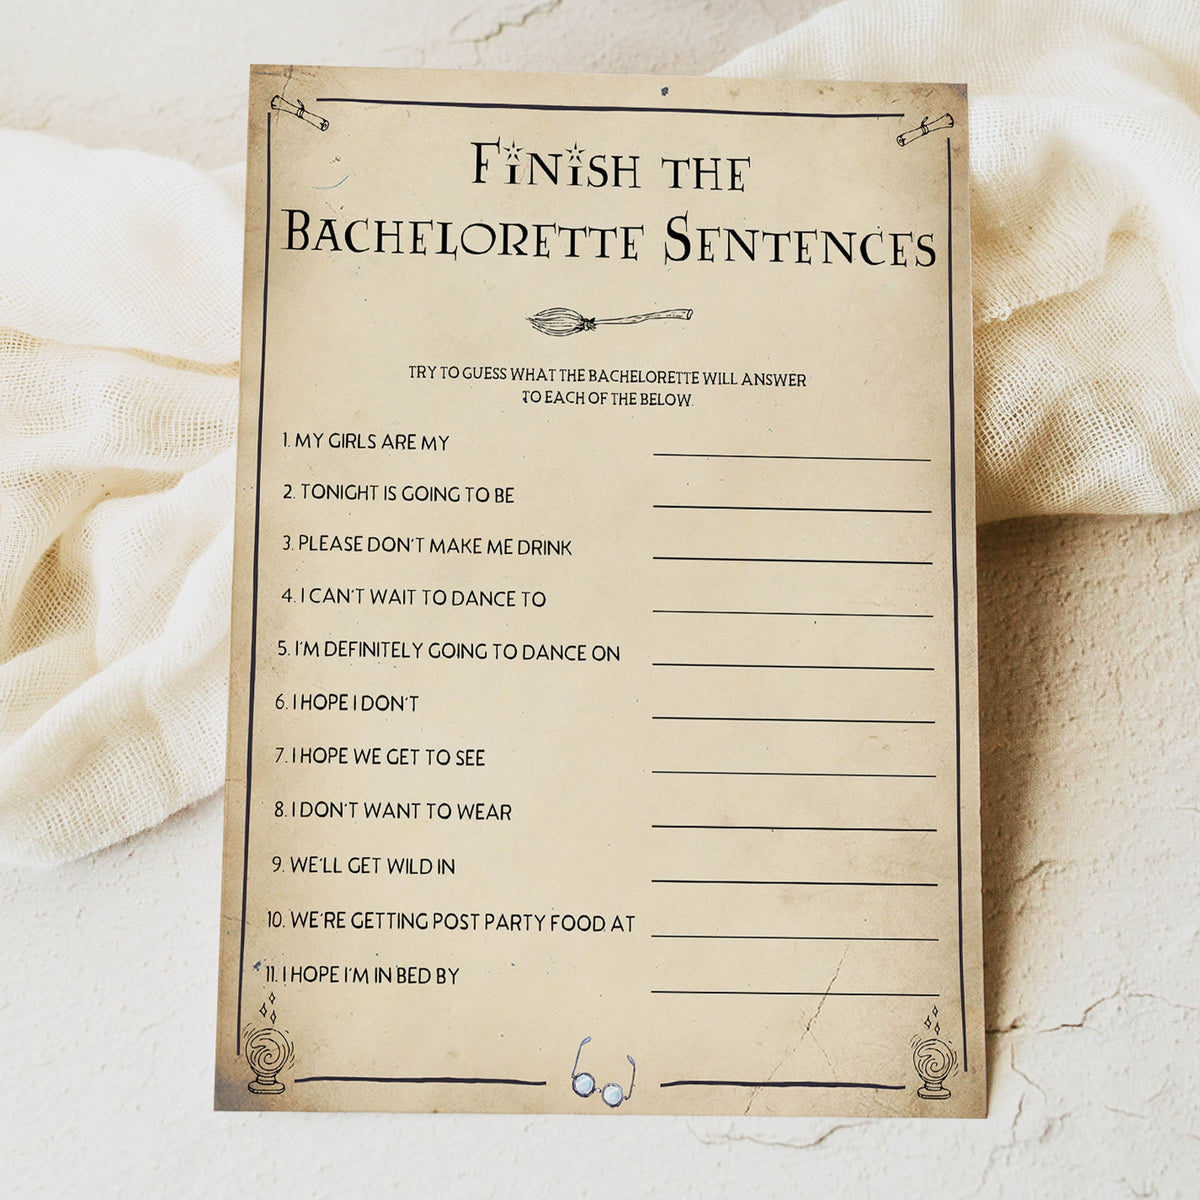 Finish the
Bachelorette Sentences
TRY TO GUESS WHAT THE BACHELORETTE WILL ANSWER
TO EACH OF THE BELOW.
1. MY GIRLS ARE MY
2. TONIGHT IS GOING TO BE
3. PLEASE DON'T MAKE ME DRINK
4. I CAN'T WAIT TO DANCE TO
5. I'M DEFINITELY GOING TO DANCE ON
6. I HOPE I DON'T
7. I HOPE WE GET TO SEE
8. I DON'T WANT TO WEAR
9. WE'LL GET WILD IN
10. WE'RE GETTING POST PARTY FOOD AT
11. I HOPE I'M IN BED BY